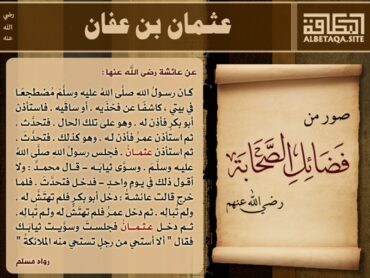 عثمان بن عفان
رضي
الله
عنه
البطاقة
ALBETAQA.SITE
عن عائشة رضى الله عنها :
كـان رسـولُ اللهِ صلَّى اللهُ عليه وسلَّمَ مُضْطجِعًا
في بيتي ، كاشفًا عن فخذَيه . أو ساقَيه . فاستأذن
أبو بكرٍ فأذِن له . وهو على تلك الحالِ . فتحدَّث .
ثم استأذن عمرُ فأذن له . وهو كذلك . فتحدَّث .
ثم استأذن عثمانُ . فجلس رسولُ اللهِ صلَّى اللهُ
عليه وسلَّمَ . وسوَّى ثيابَه - قال محمدٌ : ولا
أقول ذلك في يومٍ واحدٍ - فدخل فتحدَّث . فلما
خرج قالت عائشةُ : دخل أبو بكرٍ فلم تهتَشَّ له
ولم تُبالِه . ثم دخل عمرُ فلم تهتَشَّ له ولم تُبالِه .
ثم دخل عثمانُ فجلستَ وسوَّيتَ ثيابَك
فقال " ألا أستحي من رجلٍ تستحي منه الملائكةُ "
رواه مسلم
صور من
فضائل الصحابة
رضي الله عنهم